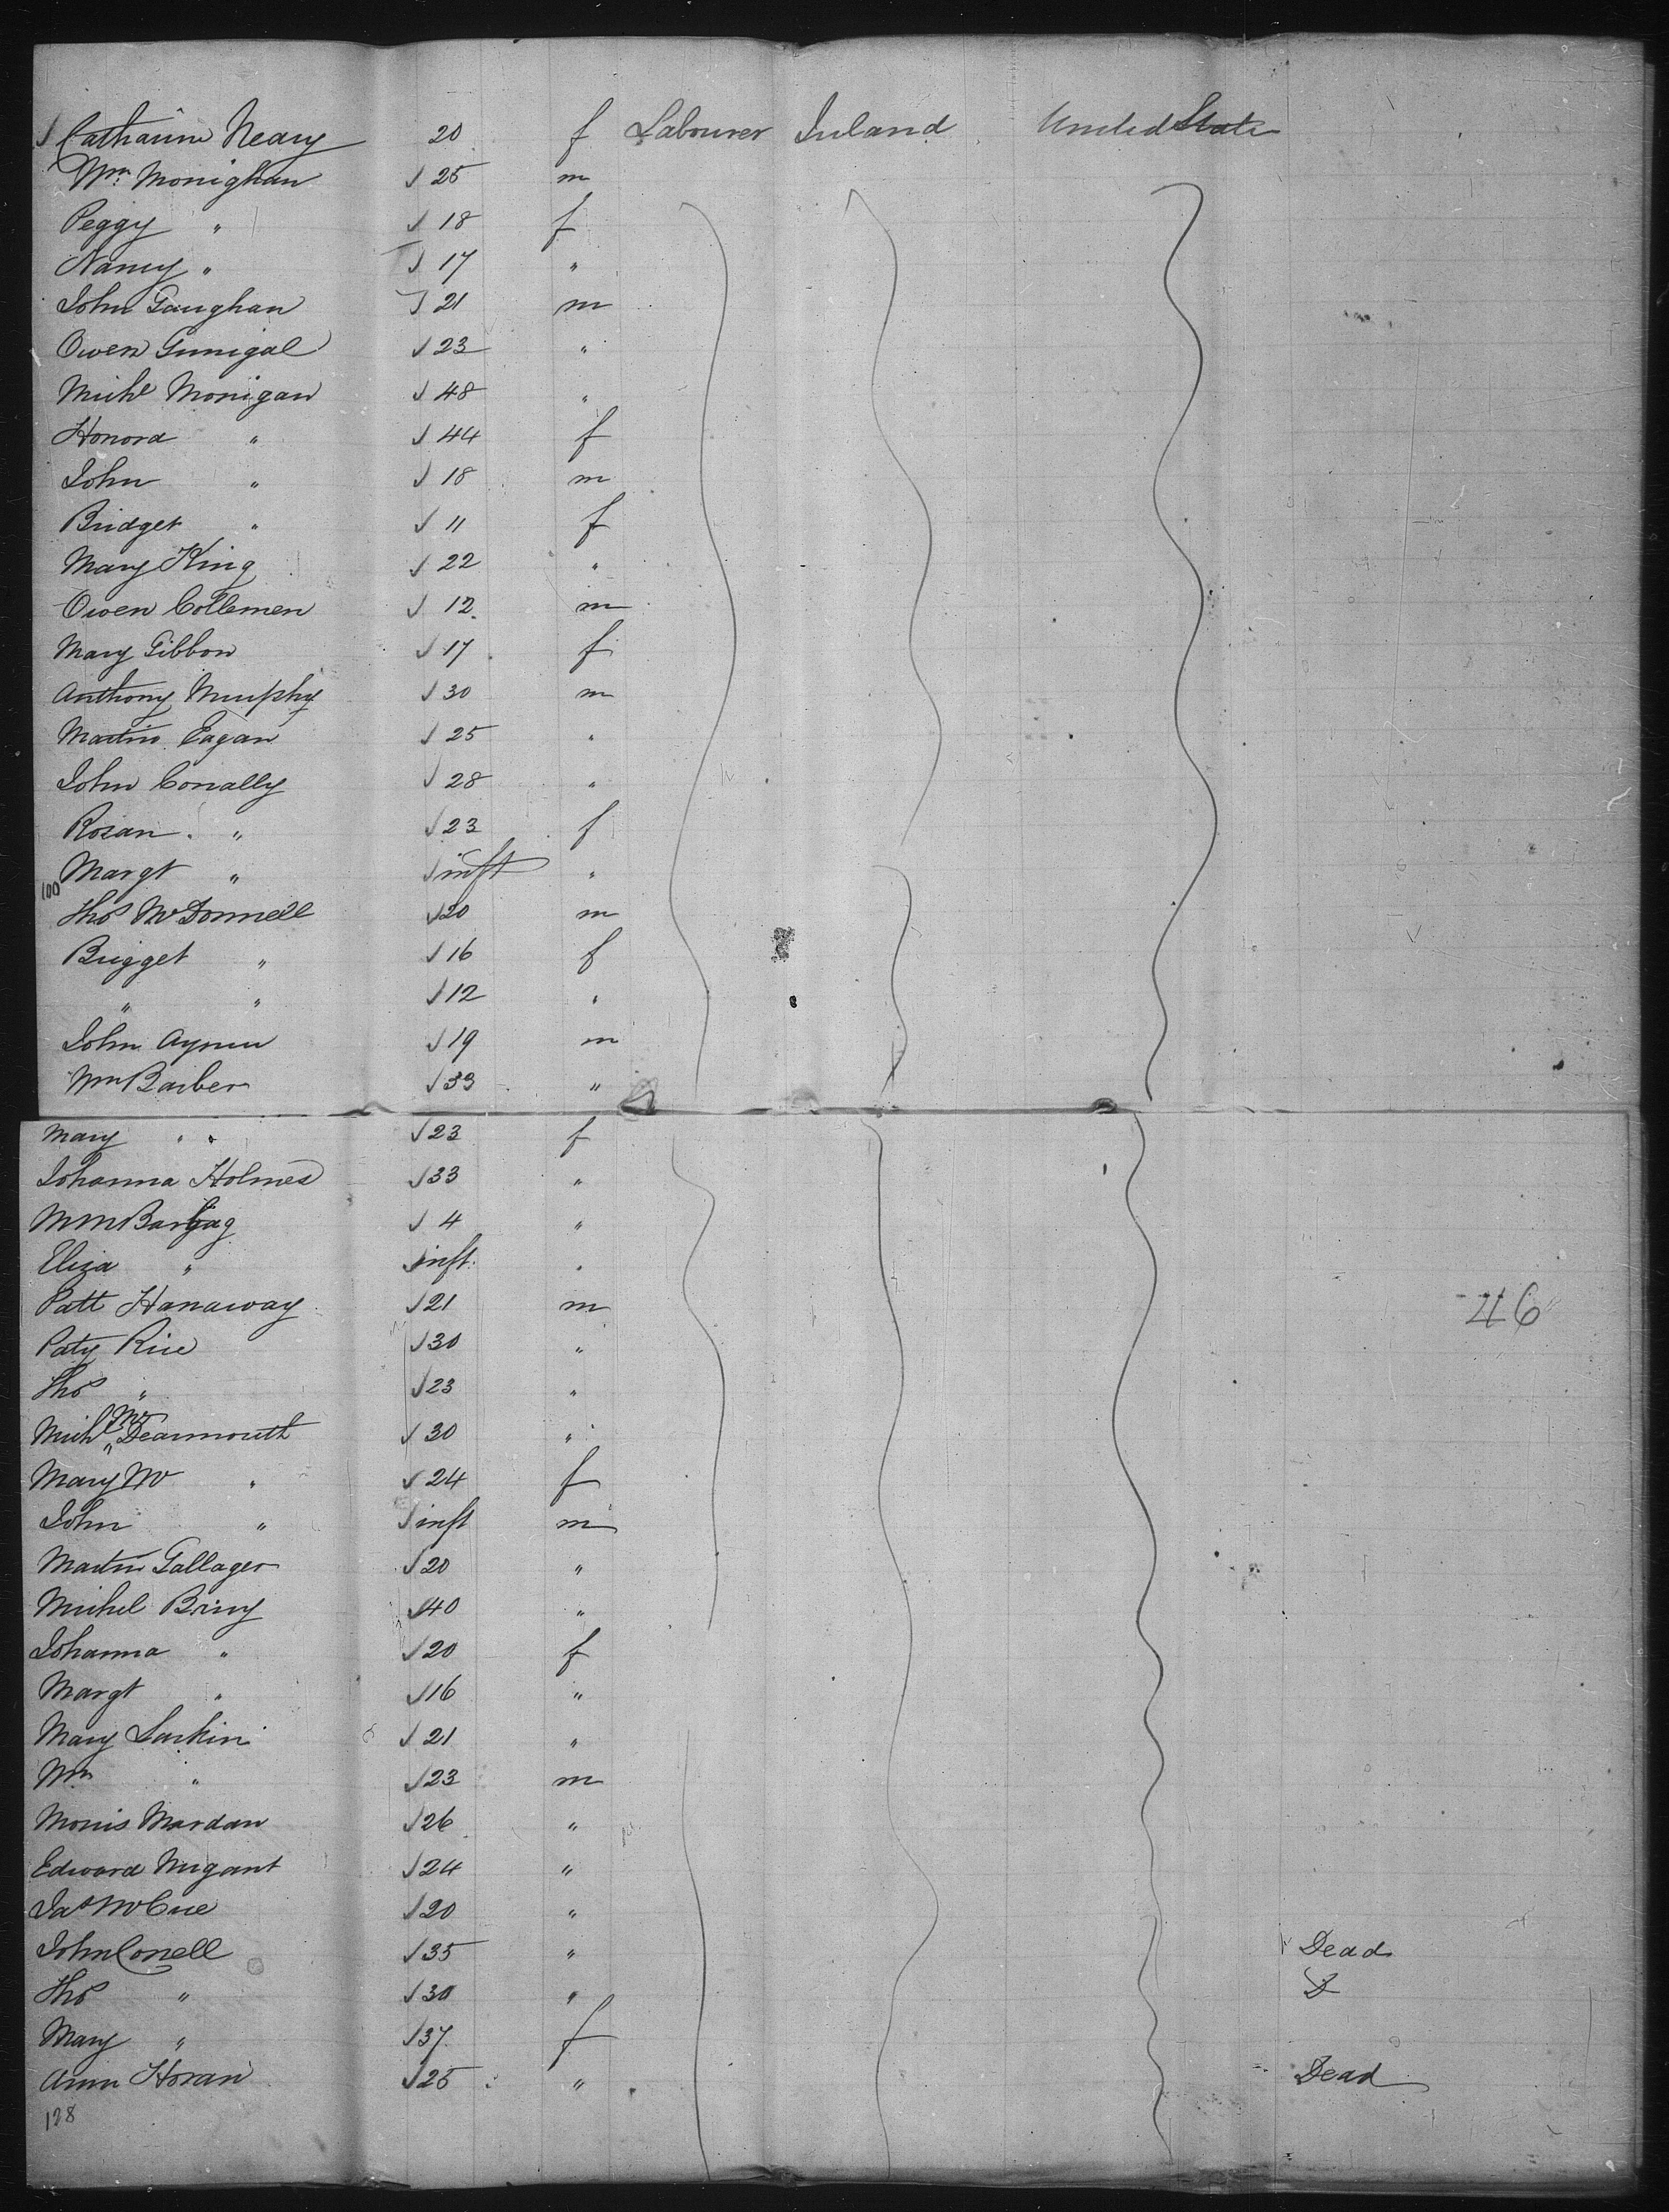 Catharine Neary 20 f Labourer Ireland United State
Wm Monighan 25 m
Peggy " 18 f
Nancy " 17 "
John Gaughan 21 m
Owen Gunigal 23 "
Michl Monigan 48 "
Honora " 44 f
John " 18 m
Bridget " 11 f
Mary King 22 "
Owen Collemen 12 m
Mary Gibbon 17 f
Anthony Murphy 30 m
Martin Eagan 25 "
John Conally 28 "
Rosan " 23 f
Margt " inft "
100
Thos McDonnell 20 m
Brigget " 16 f
" " 12 "
John 19 m
Wm Barber 33 "
Mary " " 23 f
Johanna Holmes 33 "
4 "
Eliza " inft "
Patt Hanaway 21 m
46
Paty Rice 30 "
Thos " 23 "
Michl Mc Dearmouth 30 "
Mary Mc " 24 f
John " inft m
Martin Gallager 20 "
Michel Briny 40 "
Johanna " 20 f
Margt " 16 "
Mary Larkin 21 "
Wm " 23 m
Morris Mardan 26 "
Edward 24 "
Jas McCue 20 "
John Conell 35 " Dead
Thos " 30 " D
Mary " 37 f
Ann Horan 25 " Dead
128